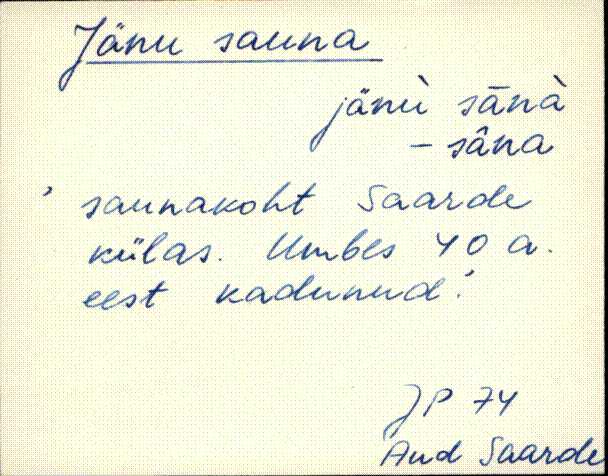 Jänu sauna
jänù sānà
– sâna
' saunakoht Saarde
külas. Umbes 40 a.
eest kadunud.'
JP 74
Aud Saarde